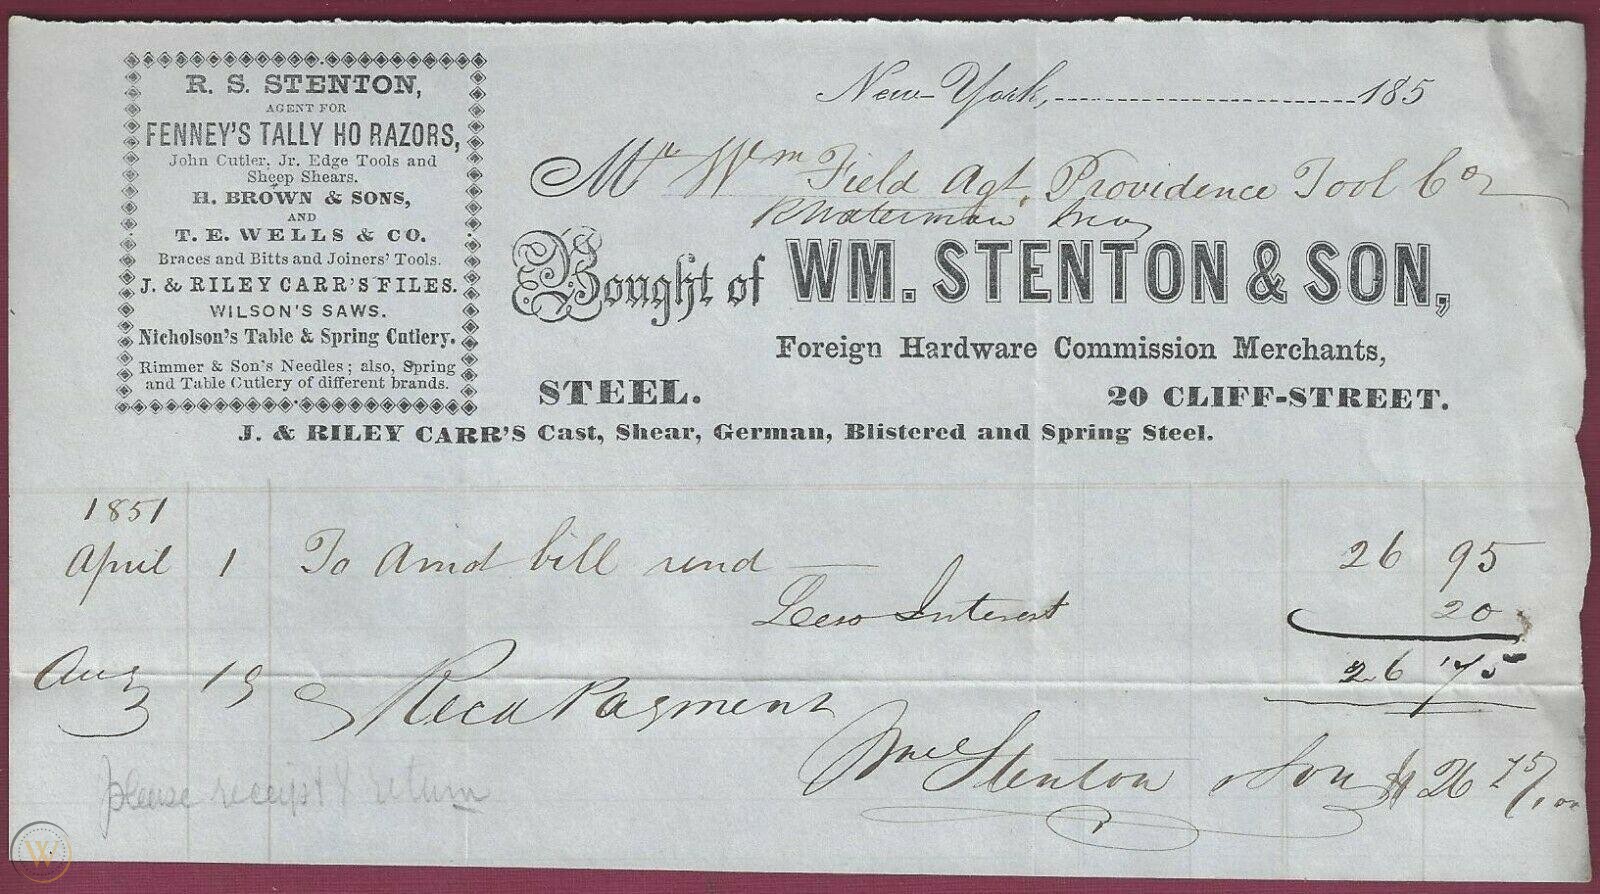 R. S. STENTON,
AGENT FOR
FENNEY'S TALLY HO RAZORS,
John Cutler, Jr. Edge Tools and
Sheep Shears.
H. BROWN & SONS,
AND
T. E. WELLS & CO.
Braces and Bitts and Joiners' Tools.
J. & RILEY CARR'S FILES.
WILSON'S SAWS.
Nicholson's Table & Spring Cutlery.
Rimmer & Son's Needles; also, Spring
and Table Cutlery of different brands.
New-York, 185
Mr Wm Field Agt. Providence Tool Co
Waterman
Bought of WM. STENTON & SON,
Foreign Hardware Commission Merchants,
STEEL. 20 CLIFF-STREET.
J. & RILEY CARR'S Cast, Shear, German, Blistered and Spring Steel.
1851
April 1 To Amt bill rend 26 95
Less Interest 20
Aug 19 Recd Payment 26 75
Wm Stenton & Son $26 75/100
please receipt & return
W